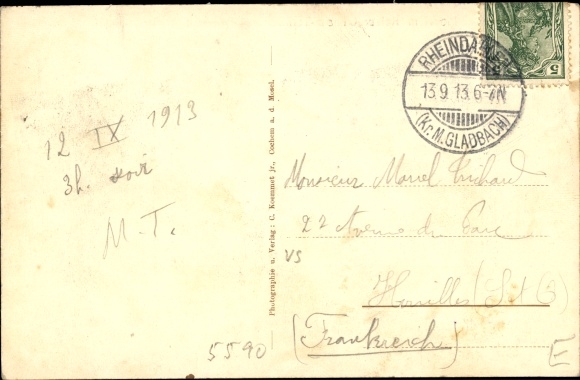 12 IX 1913
3h. soir
M. T.
5590
Photographie u. Verlag: C. Koemmet jr., Cochem a. d. Mosel.
5
RHEINDAHLEN
13.9.13.6-7N
(Kr. M. GLADBACH)
Monsieur Marcel
22 Avenue du Parc
VS
Houilles (S et O)
(Frankreich)
E